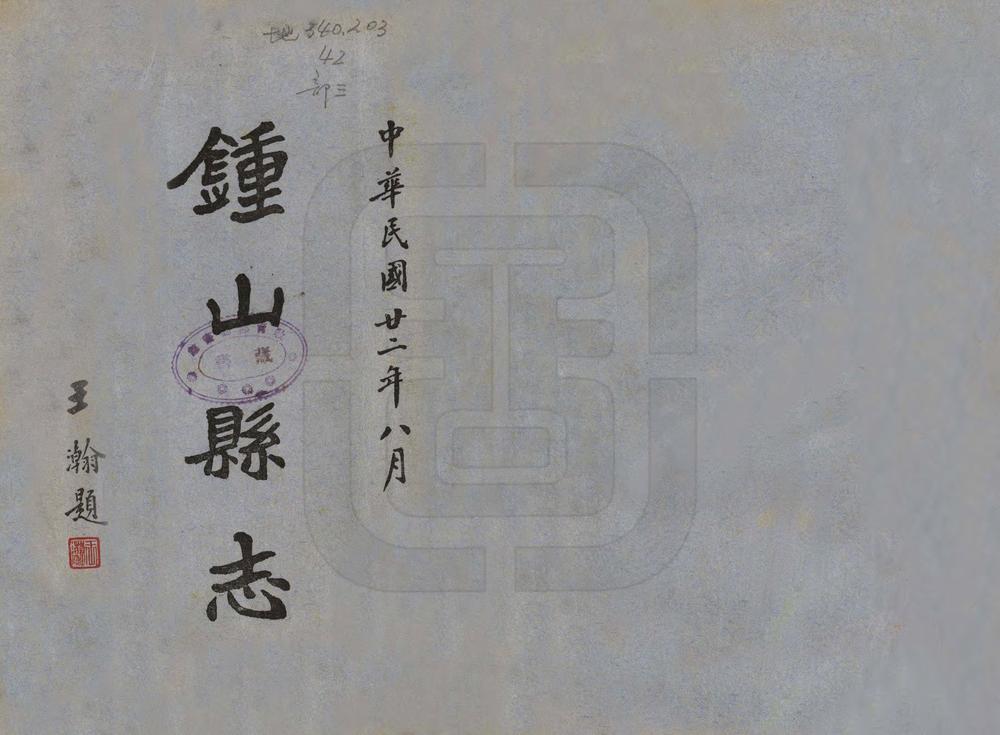 地 340.203
42
部三
中華民國廿二年八月
鍾山縣志
王瀚題